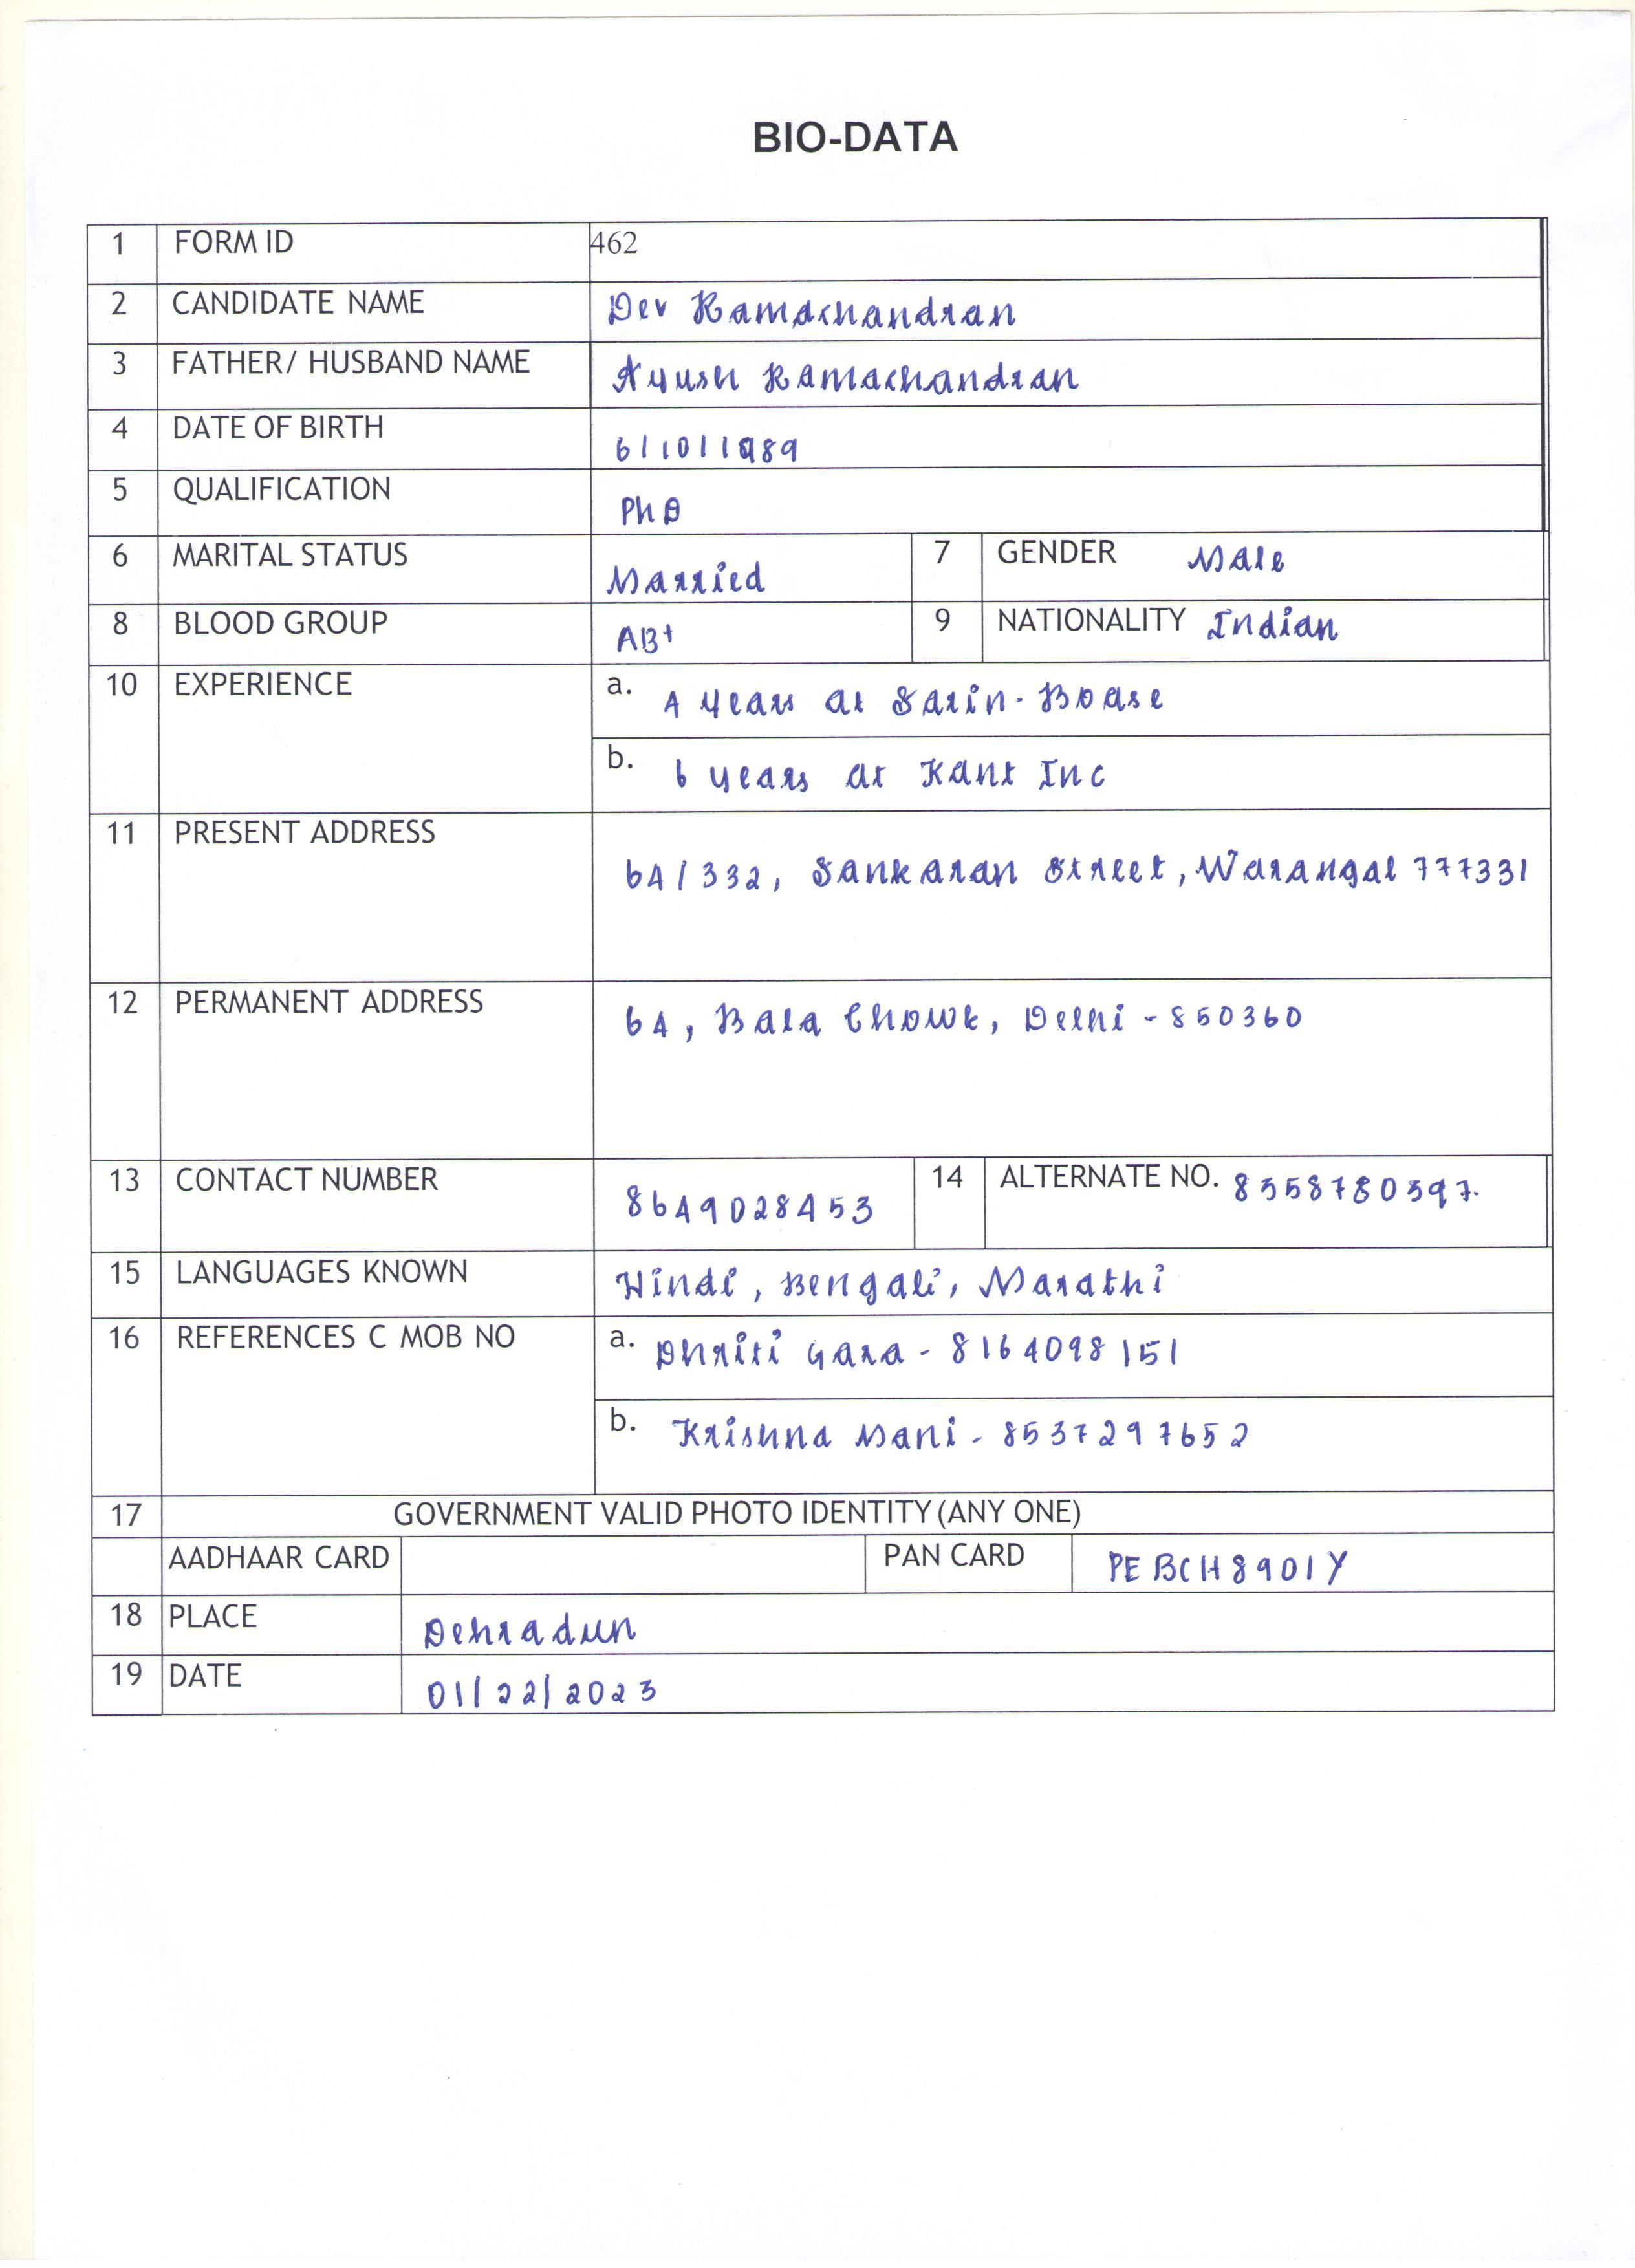 BIO-DATA
1 FORM ID 462
2 CANDIDATE NAME Dev Ramachandran
3 FATHER/ HUSBAND NAME Ayush Ramachandran
4 DATE OF BIRTH 6/10/1989
5 QUALIFICATION PhD
6 MARITAL STATUS Married 7 GENDER Male
8 BLOOD GROUP AB+ 9 NATIONALITY Indian
10 EXPERIENCE a. 4 years at Sarin-Boase
b. 6 years at Kant Inc
11 PRESENT ADDRESS 64/332, Sankaran Street, Warangal 777331
12 PERMANENT ADDRESS 64, Bala Chowk, Delhi - 850360
13 CONTACT NUMBER 8649028453 14 ALTERNATE NO. 8558780597.
15 LANGUAGES KNOWN Hindi, Bengali, Marathi
16 REFERENCES C MOB NO a. Dhriti Gara - 8164098151
b. Krishna Mani - 8537297652
17 GOVERNMENT VALID PHOTO IDENTITY (ANY ONE)
AADHAAR CARD PAN CARD PEBCH8901Y
18 PLACE Dehradun
19 DATE 01/22/2023